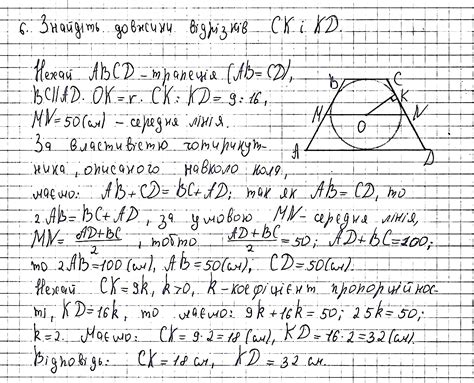 6. Знайдіть довжини відрізків CK і KD.
Нехай ABCD – трапеція (AB = CD),
BC||AD. OK = r. CK : KD = 9 : 16,
MN = 50 (см) – середня лінія.
За властивістю чотирикут-
ника, описаного навколо кола,
маємо: AB + CD = BC + AD; так як AB = CD, то
2AB = BC + AD, за умовою MN – середня лінія,
MN = (AD + BC)/2, тобто (AD + BC)/2 = 50; AD + BC = 100;
то 2AB = 100 (см), AB = 50 (см), CD = 50 (см).
Нехай CK = 9k, k > 0, k – коефіцієнт пропорційнос-
ті, KD = 16k, то маємо: 9k + 16k = 50; 25k = 50;
k = 2. Маємо: CK = 9 · 2 = 18 (см), KD = 16 · 2 = 32 (см).
Відповідь: CK = 18 см, KD = 32 см.
B C
K
M N
O
A D